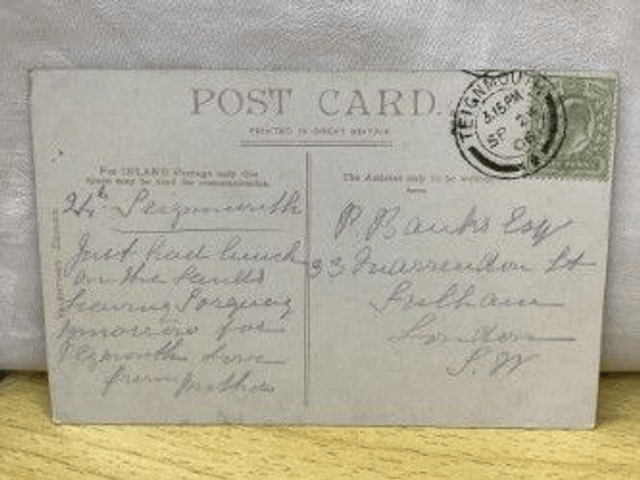 POST CARD.
PRINTED IN GREAT BRITAIN
For INLAND Postage only this
space may be used for communication.
The Address only to be
here
TEIGNMOUTH
3.15 PM
SP 2
24th
Just had lunch
on the sands
leaving Torquay
tomorrow for
love
from
P. Banks Esq
33 St
Fulham
London
S.W